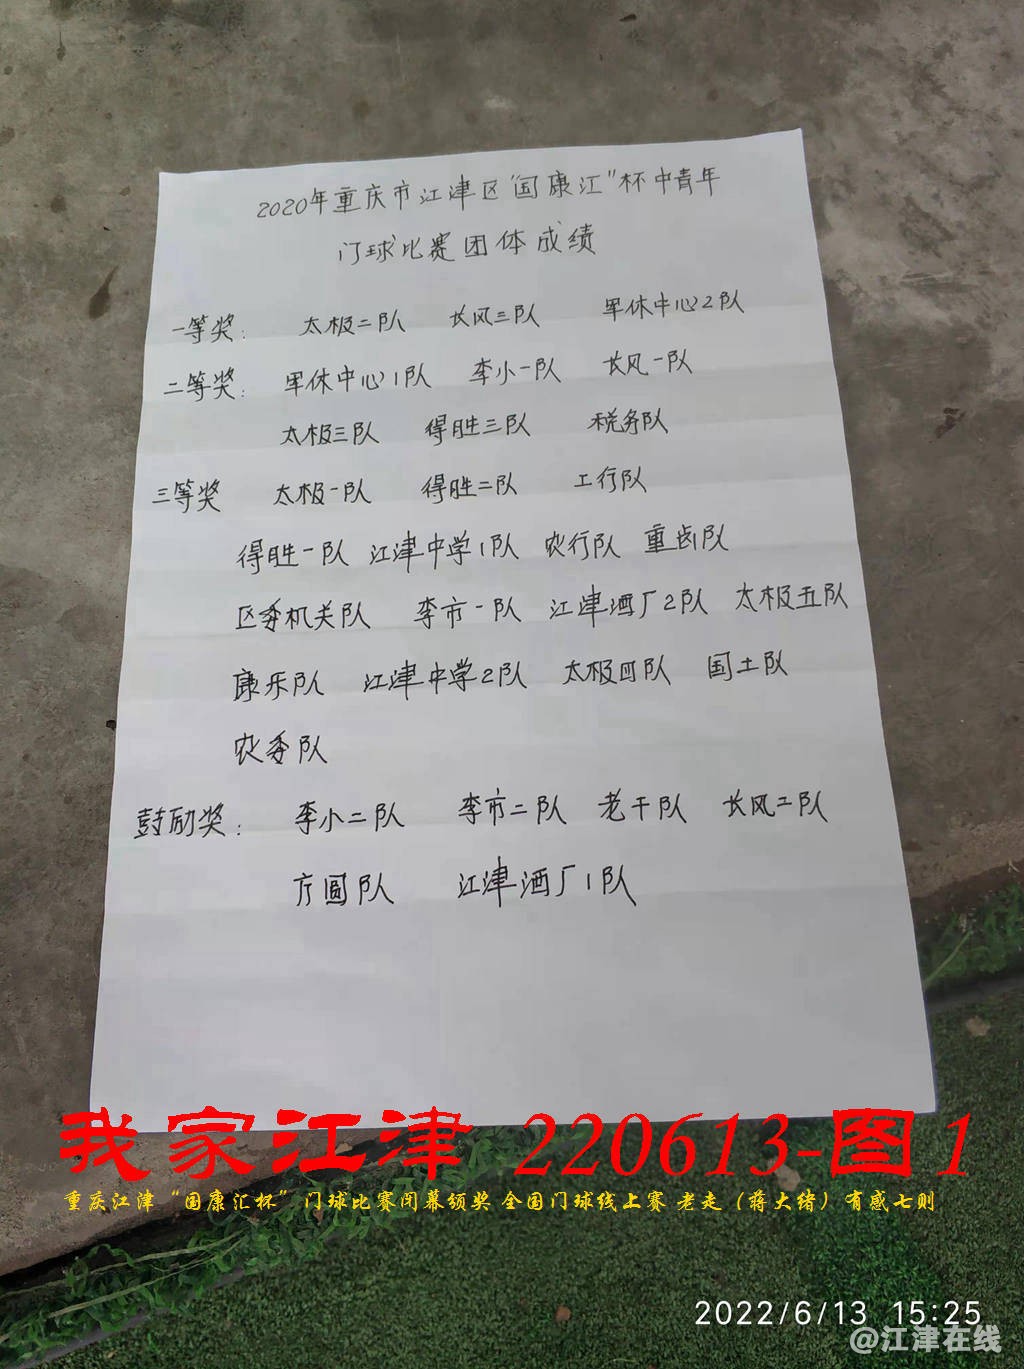 2020年重庆市江津区"国康汇"杯中青年
门球比赛团体成绩
一等奖: 太极二队 长风三队 军休中心2队
二等奖: 军休中心1队 李小一队 长风一队
太极三队 得胜三队 税务队
三等奖 太极一队 得胜二队 工行队
得胜一队 江津中学1队 农行队 重齿队
区委机关队 李市一队 江津酒厂2队 太极五队
康乐队 江津中学2队 太极四队 国土队
农委队
鼓励奖: 李小二队 李市二队 老干队 长风二队
方圆队 江津酒厂1队
我家江津 220613-图1
重庆江津“国康汇杯”门球比赛闭幕颁奖 全国门球线上赛 老走（蒋大绪）有感七则
2022/6/13 15:25
@江津在线